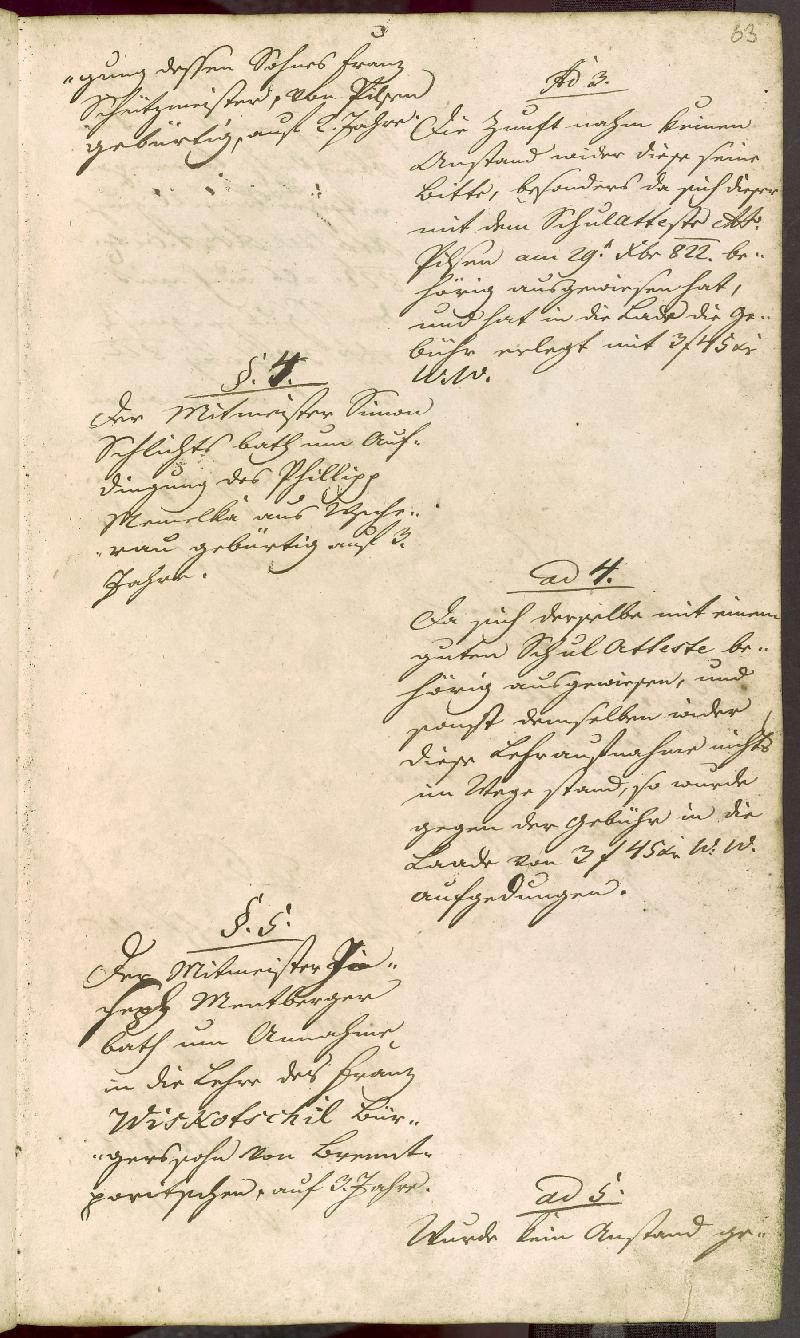 63
"gung dessen Sohnes Franz
Schützmeister, von Pilsen
gebürtig, auf 2. Jahre.
Ad 3.
Die Zunft nahm keinen
Anstand wider diese seine
Bitte, besonders da sich dieser
mit dem Schulatteste
Pilsen am 29t Xbr 822. be"
hörig ausgewiesen hat,
und hat in die Lade die Ge"
bühr erlegt mit 3f 45 xr
W.W.
§. 4.
Der Mitmeister Simon
Schlichts bath um Auf"
dingung des Phillipp
Memelka aus Wsche"
"rau gebürtig auf 3.
Jahre.
ad 4.
Da sich derselbe mit einem
guten Schul Atteste be"
hörig ausgewiesen, und
sonst demselben wider
diese Lehraufnahme nichts
im Wege stand, so wurde
gegen der Gebühr in die
Laade von 3 f 45 xr W. W.
aufgedungen.
§. 5.
Der Mitmeister Jo"
seph Mentberger
bath um Annahme
in die Lehre des Franz
Wiskotschil Bür"
"gerssohn von Brennt"
poritschen, auf 3. Jahre.
ad 5.
Wurde kein Anstand ge"